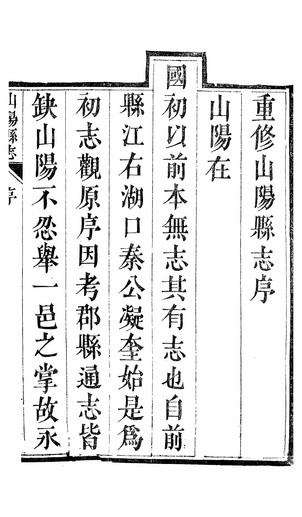 重修山陽縣志序
山陽在
國初以前本無志其有志也自前
縣江右湖口秦公凝奎始是爲
初志觀原序因考郡縣通志皆
缺山陽不忍舉一邑之掌故永
山陽縣志 序